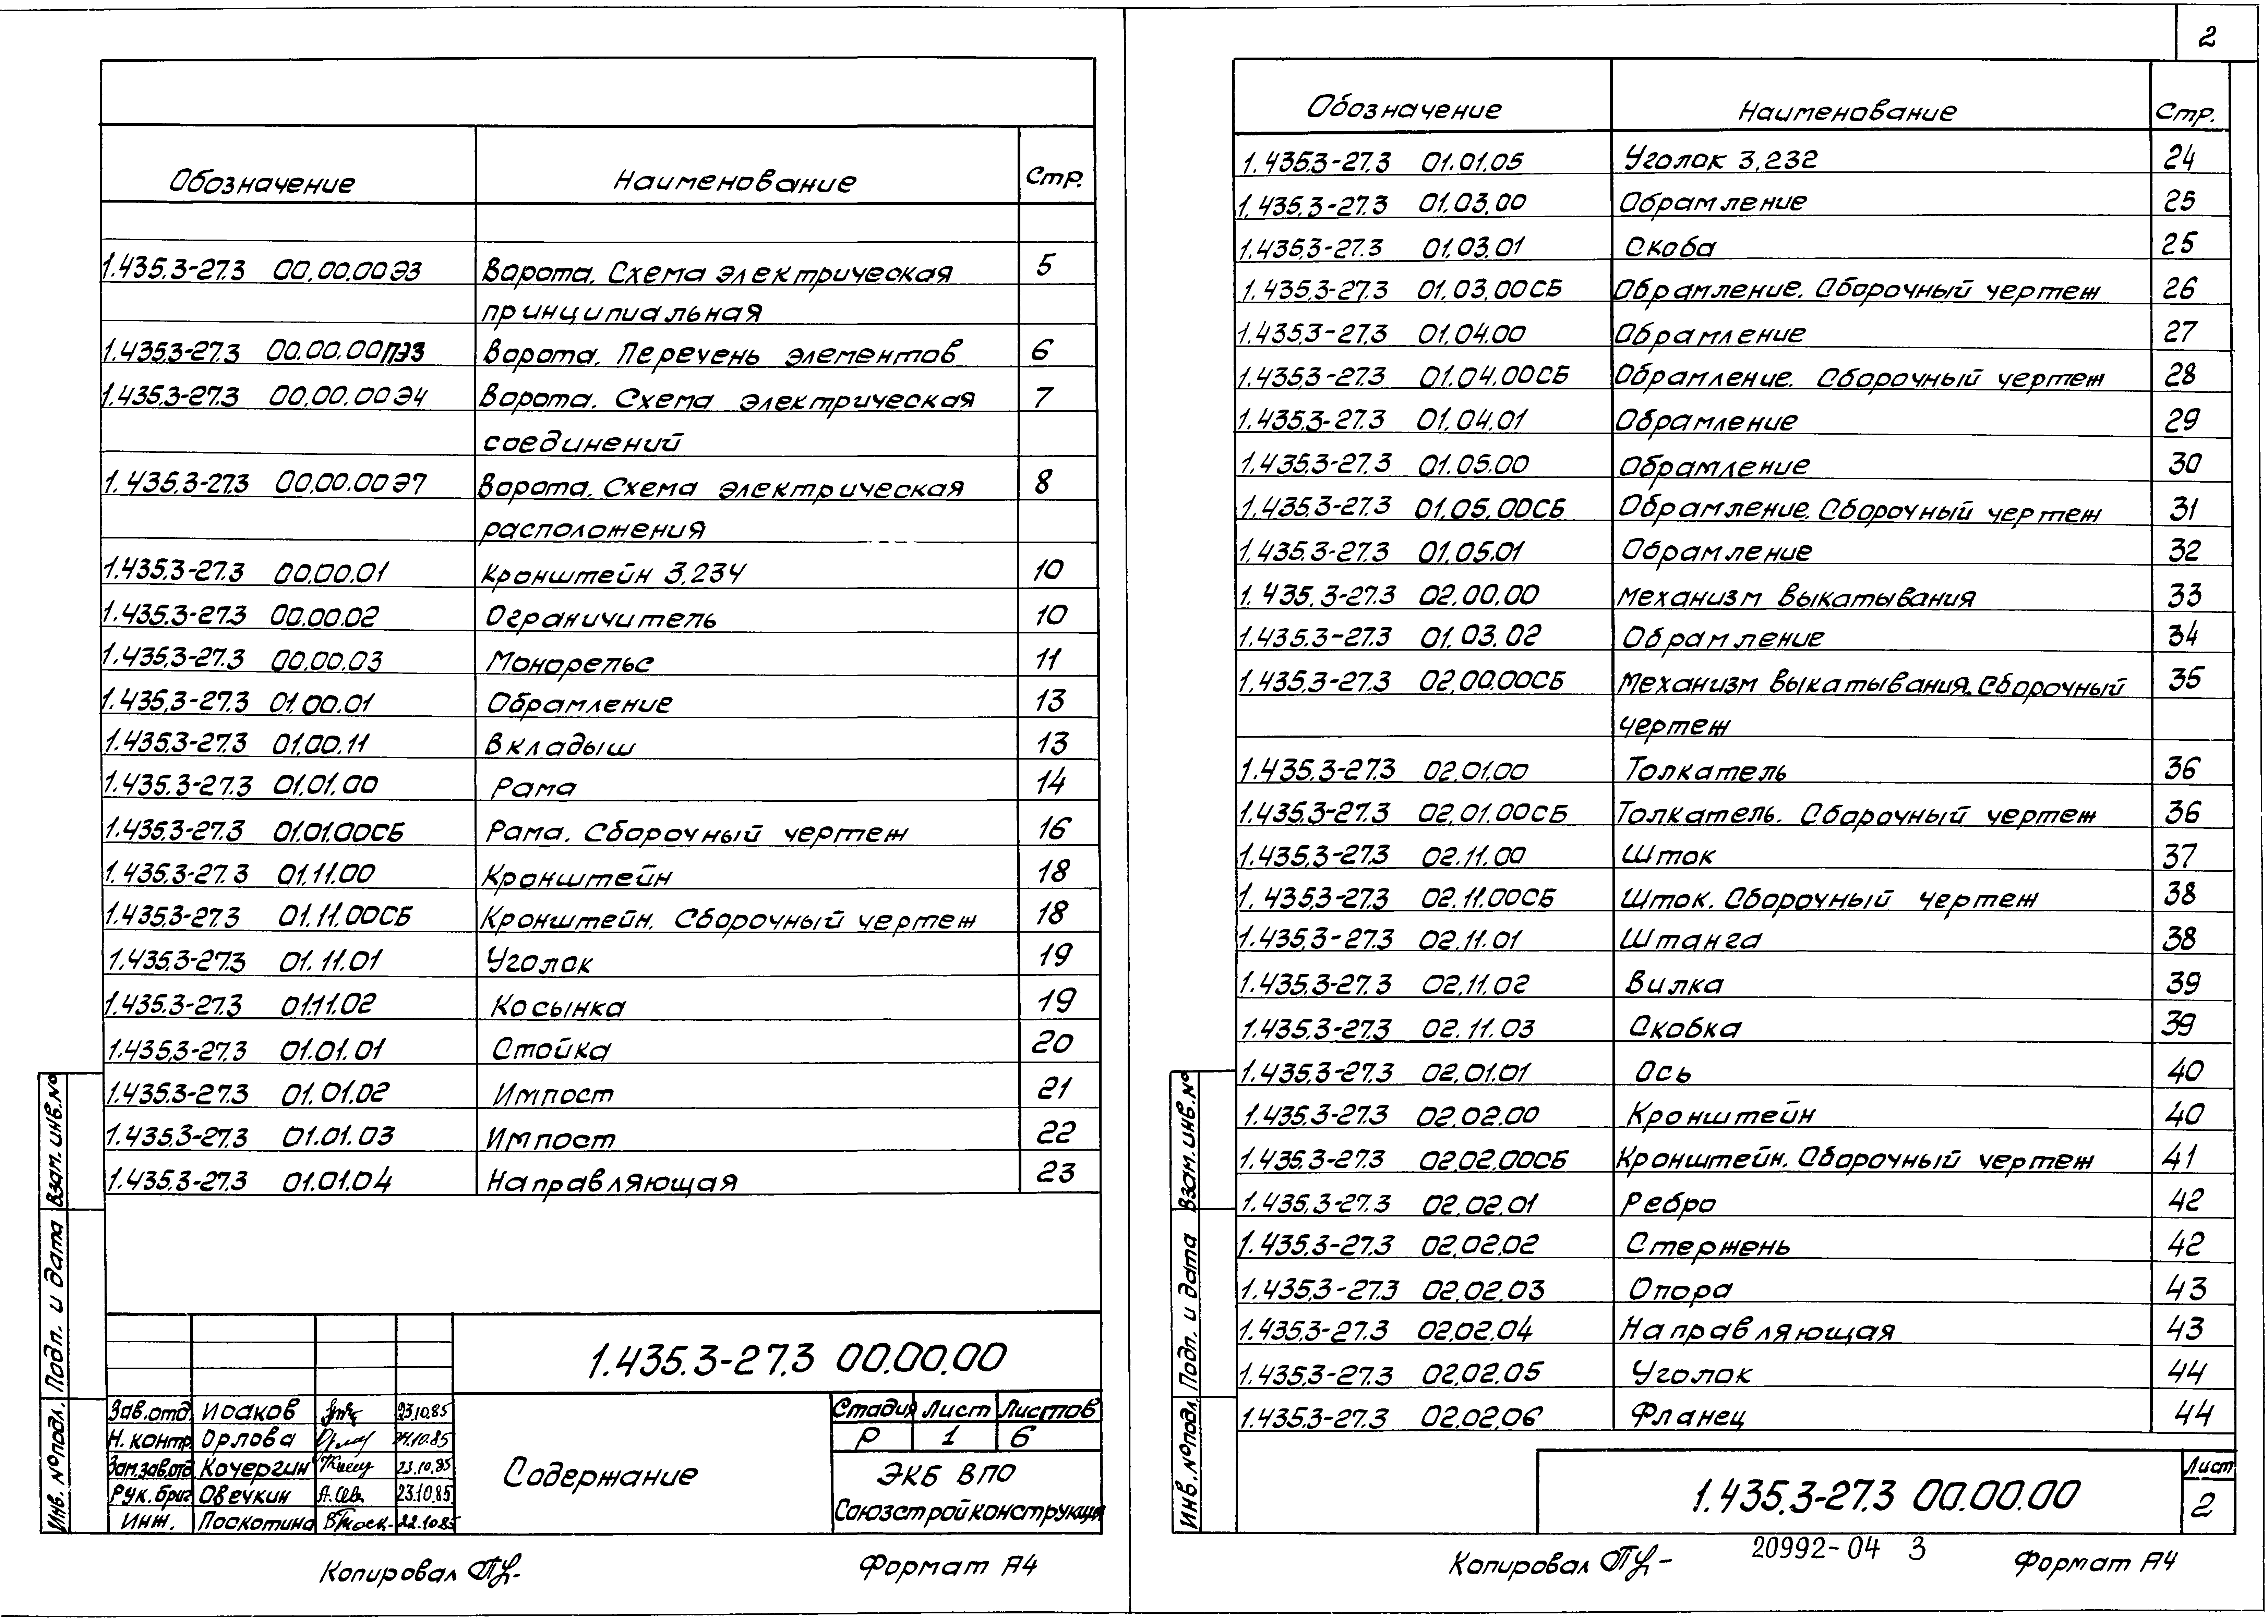 Обозначение Наименование Стр.
1.435.3-27.3 00.00.00Э3 Ворота. Схема электрическая 5
принципиальная
1.435.3-27.3 00.00.00ПЭ3 Ворота. Перечень элементов 6
1.435.3-27.3 00.00.00Э4 Ворота. Схема электрическая 7
соединений
1.435.3-27.3 00.00.00Э7 Ворота. Схема электрическая 8
расположения
1.435.3-27.3 00.00.01 Кронштейн 3.234 10
1.435.3-27.3 00.00.02 Ограничитель 10
1.435.3-27.3 00.00.03 Монорельс 11
1.435.3-27.3 01.00.01 Обрамление 13
1.435.3-27.3 01.00.11 Вкладыш 13
1.435.3-27.3 01.01.00 Рама 14
1.435.3-27.3 01.01.00СБ Рама. Сборочный чертеж 16
1.435.3-27.3 01.11.00 Кронштейн 18
1.435.3-27.3 01.11.00СБ Кронштейн. Сборочный чертеж 18
1.435.3-27.3 01.11.01 Уголок 19
1.435.3-27.3 01.11.02 Косынка 19
1.435.3-27.3 01.01.01 Стойка 20
1.435.3-27.3 01.01.02 Импост 21
1.435.3-27.3 01.01.03 Импост 22
1.435.3-27.3 01.01.04 Направляющая 23
Взам. инв. №
Подп. и дата
Инв. № подл.
1.435.3-27.3 00.00.00
Зав. отд. Исаков 23.10.85
Н. контр. Орлова 24.10.85
Зам. зав. отд Кочергин 23.10.85
Рук. бриг. Овечкин 23.10.85
Инж. Поскотина 22.10.85
Содержание
Стадия Лист Листов
Р 1 6
ЭКБ ВПО
Союзстройконструкция
Копировал Формат А4
2
Обозначение Наименование Стр.
1.435.3-27.3 01.01.05 Уголок 3.232 24
1.435.3-27.3 01.03.00 Обрамление 25
1.435.3-27.3 01.03.01 Скоба 25
1.435.3-27.3 01.03.00СБ Обрамление. Сборочный чертеж 26
1.435.3-27.3 01.04.00 Обрамление 27
1.435.3-27.3 01.04.00СБ Обрамление. Сборочный чертеж 28
1.435.3-27.3 01.04.01 Обрамление 29
1.435.3-27.3 01.05.00 Обрамление 30
1.435.3-27.3 01.05.00СБ Обрамление. Сборочный чертеж 31
1.435.3-27.3 01.05.01 Обрамление 32
1.435.3-27.3 02.00.00 Механизм выкатывания 33
1.435.3-27.3 01.03.02 Обрамление 34
1.435.3-27.3 02.00.00СБ Механизм выкатывания. Сборочный 35
чертеж
1.435.3-27.3 02.01.00 Толкатель 36
1.435.3-27.3 02.01.00СБ Толкатель. Сборочный чертеж 36
1.435.3-27.3 02.11.00 Шток 37
1.435.3-27.3 02.11.00СБ Шток. Сборочный чертеж 38
1.435.3-27.3 02.11.01 Штанга 38
1.435.3-27.3 02.11.02 Вилка 39
1.435.3-27.3 02.11.03 Скобка 39
1.435.3-27.3 02.01.01 Ось 40
1.435.3-27.3 02.02.00 Кронштейн 40
1.435.3-27.3 02.02.00СБ Кронштейн. Сборочный чертеж 41
1.435.3-27.3 02.02.01 Ребро 42
1.435.3-27.3 02.02.02 Стержень 42
1.435.3-27.3 02.02.03 Опора 43
1.435.3-27.3 02.02.04 Направляющая 43
1.435.3-27.3 02.02.05 Уголок 44
1.435.3-27.3 02.02.06 Фланец 44
Взам. инв. №
Подп. и дата
Инв. № подл.
1.435.3-27.3 00.00.00
Лист
2
Копировал 20992-04 3 Формат А4